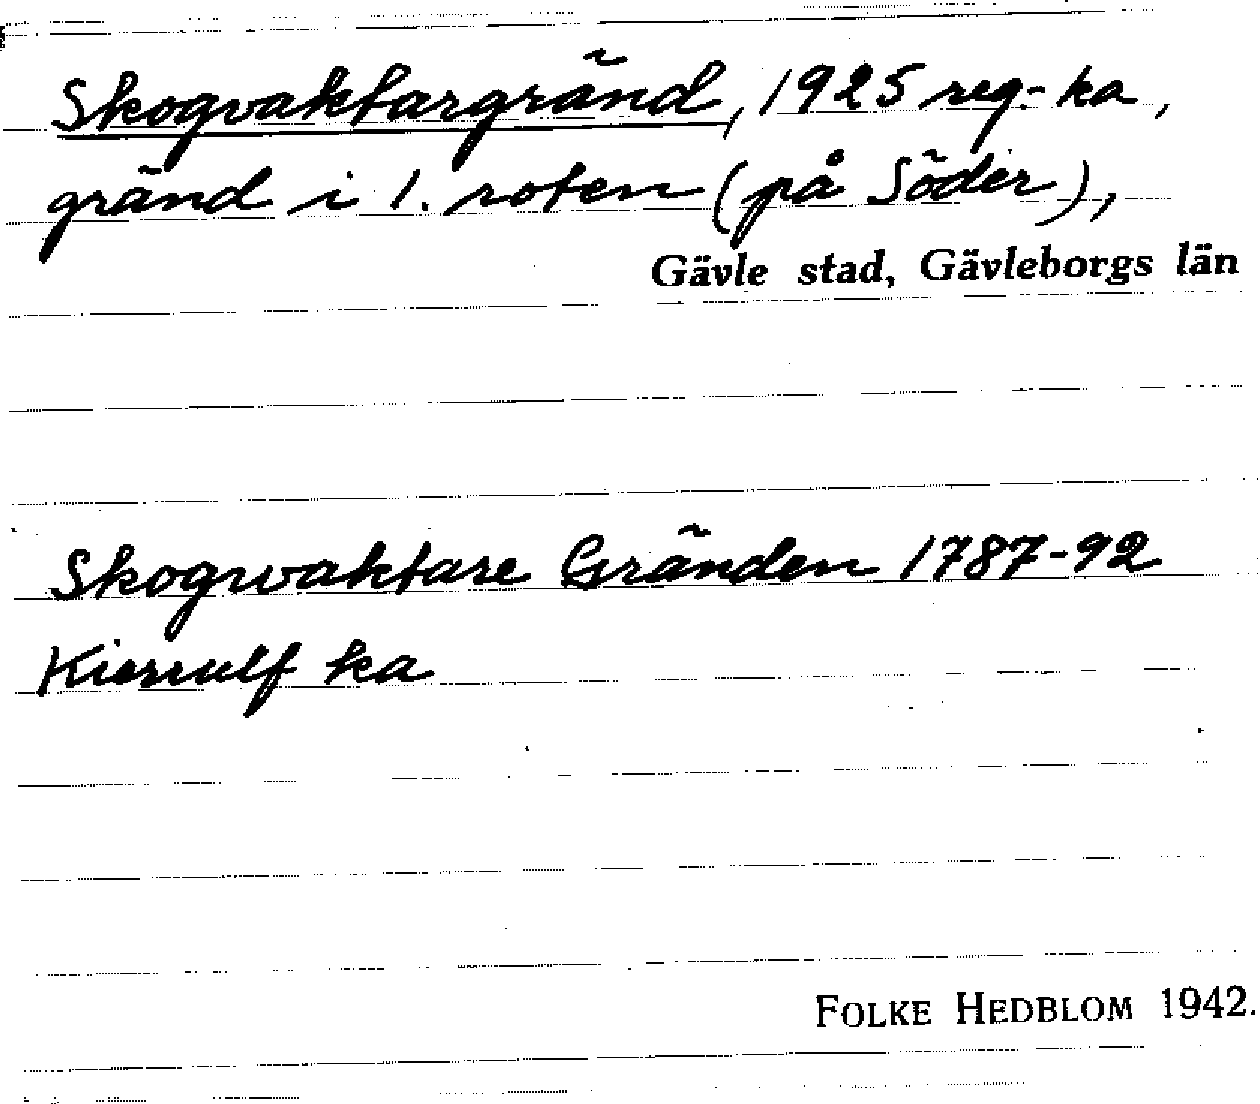 Skogvaktargränd, 1925 reg.-ka,
gränd i 1. roten (på Söder),
Gävle stad, Gävleborgs län
Skogwaktare Gränden 1787-92
Kierrulf ka
FOLKE HEDBLOM 1942.